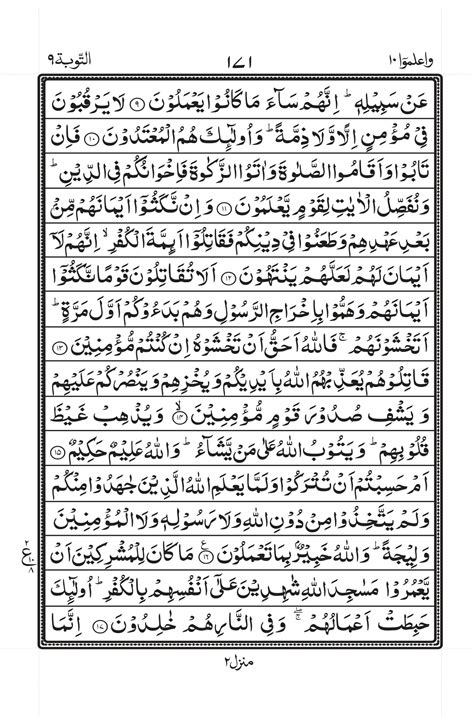 واعلموا ١٠ ١٧١ التوبة ٩
عَنْ سَبِيْلِهٖ ؕ اِنَّهُمْ سَآءَ مَا كَانُوْا يَعْمَلُوْنَ ۝۹ لَا يَرْقُبُوْنَ
فِيْ مُؤْمِنٍ اِلًّا وَّلَا ذِمَّةً ؕ وَاُولٰٓئِكَ هُمُ الْمُعْتَدُوْنَ ۝۱۰ فَاِنْ
تَابُوْا وَاَقَامُوا الصَّلٰوةَ وَاٰتَوُا الزَّكٰوةَ فَاِخْوَانُكُمْ فِي الدِّيْنِ ؕ
وَنُفَصِّلُ الْاٰيٰتِ لِقَوْمٍ يَّعْلَمُوْنَ ۝۱۱ وَاِنْ نَّكَثُوْۤا اَيْمَانَهُمْ مِّنْۢ
بَعْدِ عَهْدِهِمْ وَطَعَنُوْا فِيْ دِيْنِكُمْ فَقَاتِلُوْۤا اَىِٕمَّةَ الْكُفْرِ ۙ اِنَّهُمْ لَاۤ
اَيْمَانَ لَهُمْ لَعَلَّهُمْ يَنْتَهُوْنَ ۝۱۲ اَلَا تُقَاتِلُوْنَ قَوْمًا نَّكَثُوْۤا
اَيْمَانَهُمْ وَهَمُّوْا بِاِخْرَاجِ الرَّسُوْلِ وَهُمْ بَدَءُوْكُمْ اَوَّلَ مَرَّةٍ ؕ
اَتَخْشَوْنَهُمْ ۚ فَاللّٰهُ اَحَقُّ اَنْ تَخْشَوْهُ اِنْ كُنْتُمْ مُّؤْمِنِيْنَ ۝۱۳
قَاتِلُوْهُمْ يُعَذِّبْهُمُ اللّٰهُ بِاَيْدِيْكُمْ وَيُخْزِهِمْ وَيَنْصُرْكُمْ عَلَيْهِمْ
وَيَشْفِ صُدُوْرَ قَوْمٍ مُّؤْمِنِيْنَ ۝۱۴ۙ وَيُذْهِبْ غَيْظَ
قُلُوْبِهِمْ ؕ وَيَتُوْبُ اللّٰهُ عَلٰى مَنْ يَّشَآءُ ؕ وَاللّٰهُ عَلِيْمٌ حَكِيْمٌ ۝۱۵
اَمْ حَسِبْتُمْ اَنْ تُتْرَكُوْا وَلَمَّا يَعْلَمِ اللّٰهُ الَّذِيْنَ جٰهَدُوْا مِنْكُمْ
وَلَمْ يَتَّخِذُوْا مِنْ دُوْنِ اللّٰهِ وَلَا رَسُوْلِهٖ وَلَا الْمُؤْمِنِيْنَ
وَلِيْجَةً ؕ وَاللّٰهُ خَبِيْرٌۢ بِمَا تَعْمَلُوْنَ ۝۱۶ع مَا كَانَ لِلْمُشْرِكِيْنَ اَنْ
ع ٢ ١٠ ٨
يَّعْمُرُوْا مَسٰجِدَ اللّٰهِ شٰهِدِيْنَ عَلٰۤى اَنْفُسِهِمْ بِالْكُفْرِ ؕ اُولٰٓئِكَ
حَبِطَتْ اَعْمَالُهُمْ ۖۚ وَفِي النَّارِ هُمْ خٰلِدُوْنَ ۝۱۷ اِنَّمَا
منزل ٢